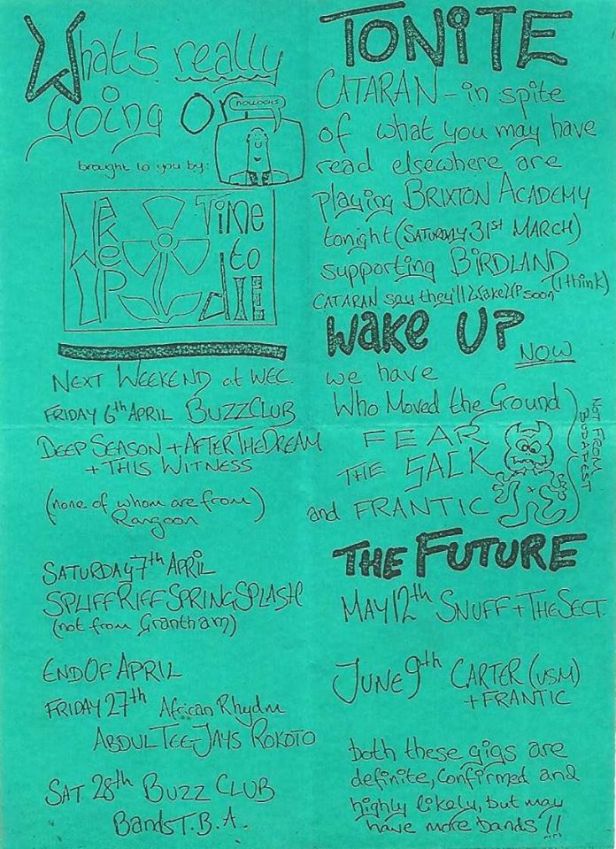 What's really
going On
nowadays
brought to you by:
WAKE UP
TIME to dIE
NEXT WEEKEND at WEC.
FRIDAY 6th APRIL BUZZCLUB
DEEP SEASON + AFTER THE DREAM
+ THIS WITNESS
(none of whom are from
Rangoon)
SATURDAY 7th APRIL
SPLIFF RIFF SPRING SPLASH
(not from Grantham)
END OF APRIL
FRIDAY 27th African Rhydm
ABDUL TEE-JAYS ROKOTO
SAT 28th BUZZ CLUB
Bands T.B.A.
TONITE
CATARAN - in spite
of what you may have
read elsewhere are
playing BRIXTON ACADEMY
tonight (SATURDAY 31st MARCH)
supporting BIRDLAND
(I think)
CATARAN say they'll WakeUP soon
Wake UP
NOW
we have
Who Moved the Ground
FEAR
THE SACK
and FRANTIC
NOT FROM
BUDAPEST
THE FUTURE
MAY 12th SNUFF + THE SECT
JUNE 9th CARTER (USM)
+ FRANTIC
both these gigs are
definite, confirmed and
highly likely, but may
have more bands !!